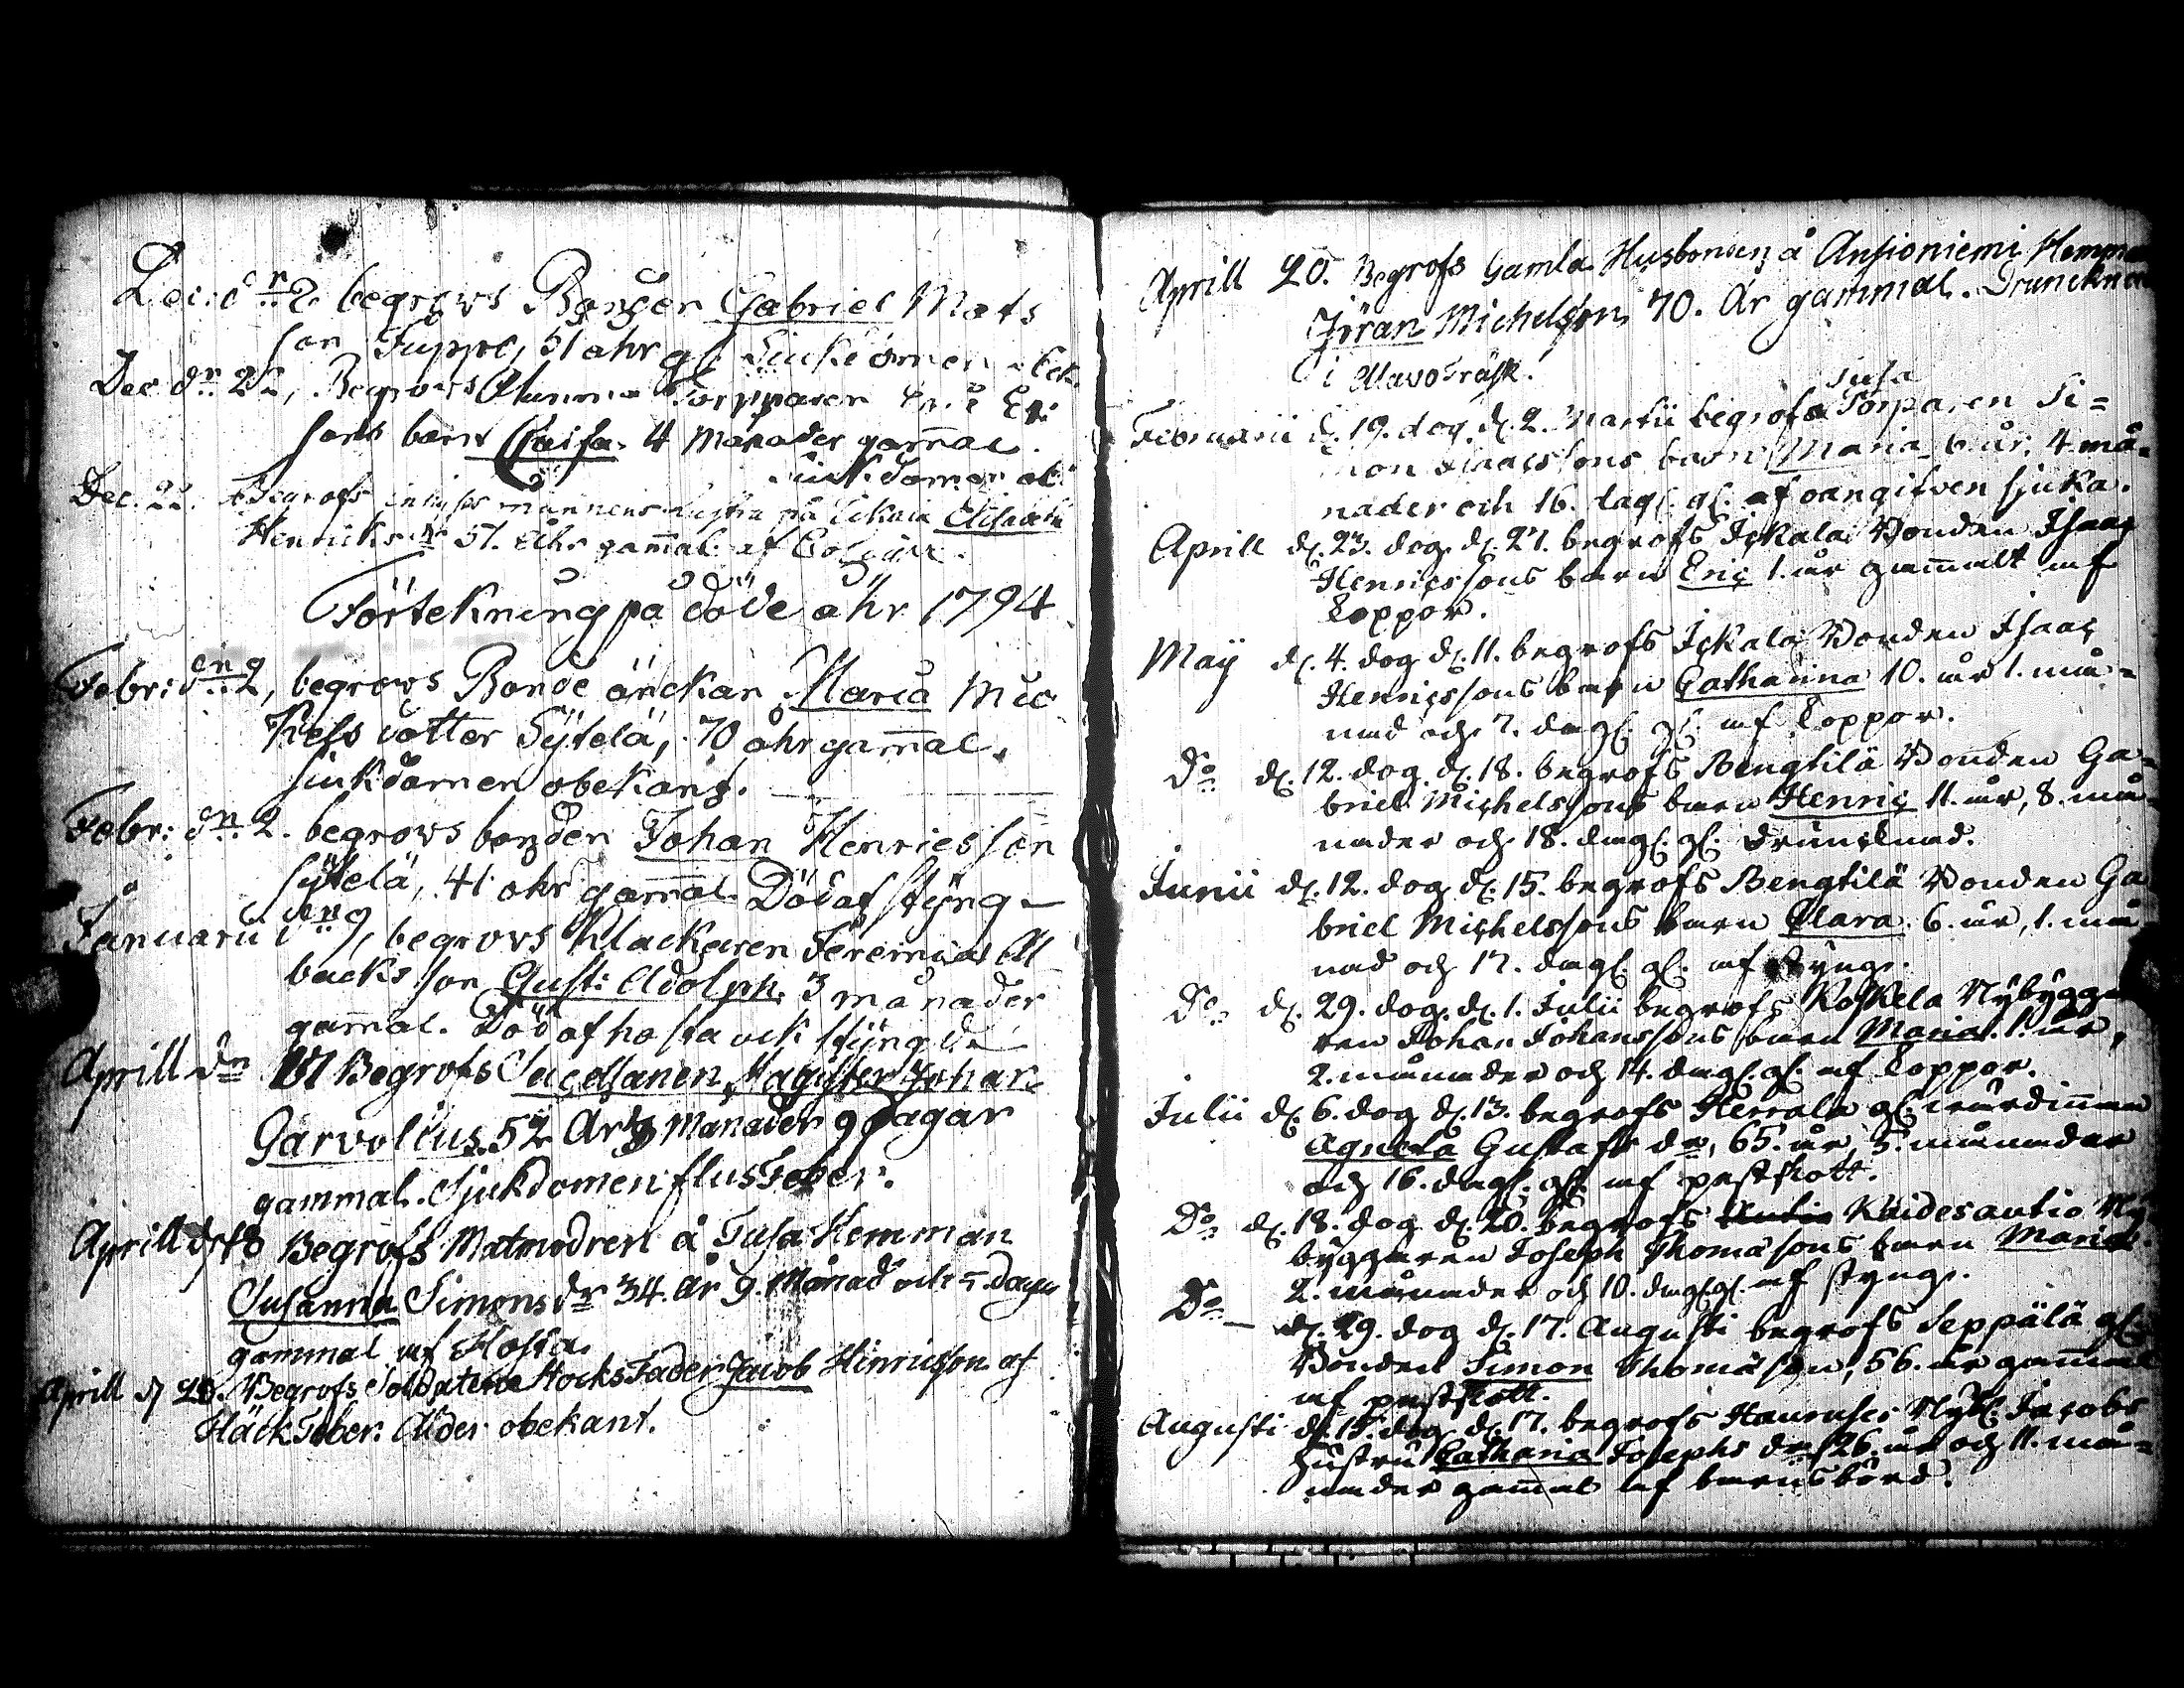 Dec: dn 2 begrovs Bonden Gabriel Mats
son Tuppe, 51 åhr gl Siukdomen obek.
Dec dn 22, Begrovs Torpparen Eric Er:
sons barn Caisa 4 Månader gam̄al
Siukdomen ob:
Dec. 22. Begrofs hustru på Elisabeth
Henricksdr 51. åhr gam̄al af
Förtekning på döde åhr 1794
Febr: den 2, begrovs Bonde änckan Maria Mic
kels dotter Sÿtelä, 70 åhr gam̄al.
siukdomen obekant.
Febr: dn 2. begrovs bonden Johan Henricsson
Sÿtelä, 41 åhr gam̄al Död af stÿng
Januarii den 9, begrovs Klackaren Jeremias All
backs son Gust: Adolph. 3 månader
gam̄al. Död af hosta ock stÿng
Aprill dn Begrofs Sacellanen, Magister Johan
Garvolius 52 År 3 Månader 9 Dagar
gammal. Sjukdomen flusfeber.
Aprill d. 18 Begrofs Matmodren å Tusa Hemman
Susanna Simonsdr 34. år 9. Månad och 5 Dagar
gammal af Hosta.
Aprill d. 20. Begrofs Soldatens Hocks Fader Jacob Hinricsson af
Häckfeber. Ålder obekant.
Aprill 20. Begrofs Gamla Husbonden å Ansioniemi Hemman
Jöran Michelsson, 70. År gammal. Drunknad
i Alavo Träsk.
Tusa
Februarii d. 19. dog d. 2. Martii begrofs Torparen Si=
mon Isaacssons barn Maria 6 år, 4 må=
nader och 16. dag. gl. af oangifven sjuka.
Aprill d. 23. dog d. 27. begrofs Ickala Bonden Isaac
Henricssons barn Eric 1. år gam̄alt af
Koppor.
Maÿ d. 4. dog d. 11. begrofs Ickala Bonden Isaac
Henricssons barn Catharina 10. år 1. må=
nad och 7. dag. gl. af Koppor.
Do d. 12. dog d. 18. begrofs Bengtilä Bonden Ga=
briel Michelssons barn Henric 11. år, 8. må=
nader och 18. dag. gl. drunknad.
Junii d. 12. dog d. 15. begrofs Bengtilä Bonden Ga
briel Michelssons barn Clara 6. år, 1. må
nad och 17. dag. gl. af styng.
Do d. 29. dog d. 1. Julii begrofs Koskela Nÿbÿgga
ren Johan Johanssons barn Maria 1. år,
2. månader och 14. dag. gl. af Koppor.
Julii d. 6. dog d. 13. begrofs Herrala gl. wärdinnan
Agneta Gustafs dr, 65. år, 5. månader
och 16. dag. gl. af pestskott.
Do d. 18. dog d. 20. begrofs Kaidesautio Nÿ
bÿggaren Joseph Thomæsons barn Maria
2. månader och 10. dag. gl. af styng.
Do d. 29. dog d. 17. Augusti begrofs Seppälä gl.
Bonden Simon Thomæson, 56. år gammal
af pestskott.
Augusti d. 15. dog d. 17. begrofs Nÿb. Jacobs
hustru Catharia Josephs dr 26. år och 11. må=
nader gam̄al af barnsbörd.